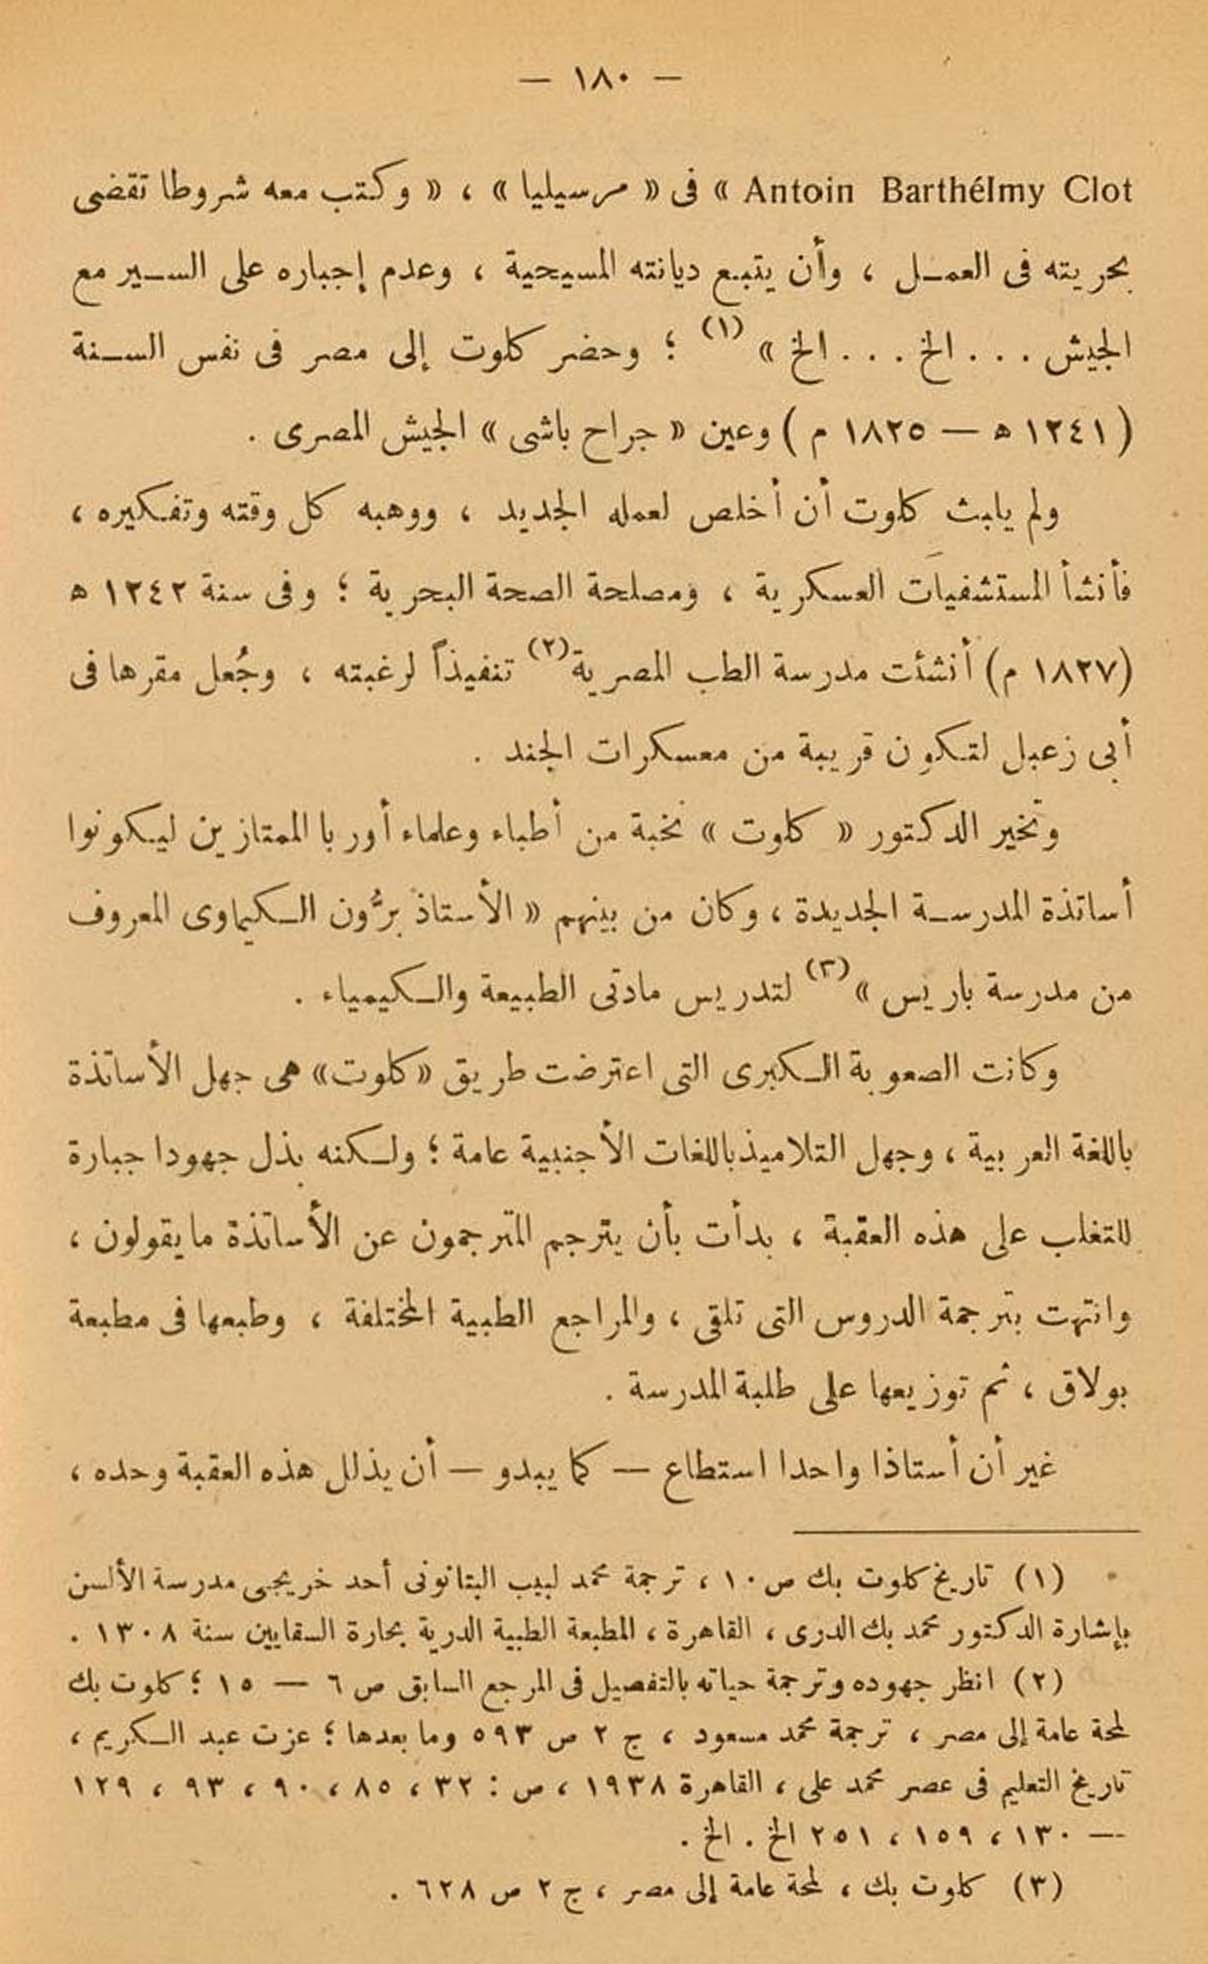 — ١٨٠ —
Antoin Barthélmy Clot » فى « مرسيليا » ، « وكتب معه شروطا تقضى
بحريته فى العمـل ، وأن يتبع ديانته المسيحية ، وعدم إجباره على الســير مع
الجيش . . . الخ . . . الخ » (١) ؛ وحضر كلوت إلى مصر فى نفس الســنة
( ١٢٤١ ه — ١٨٢٥ م ) وعين « جراح باشى » الجيش المصرى .
ولم يلبث كلوت أن أخلص لعمله الجديد ، ووهبه كل وقته وتفكيره ،
فأنشأ المستشفيات العسكرية ، ومصلحة الصحة البحرية ؛ وفى سنة ١٢٤٢ ه
(١٨٢٧ م) أنشئت مدرسة الطب المصرية(٢) تنفيذاً لرغبته ، وجُعل مقرها فى
أبى زعبل لتكون قريبة من معسكرات الجند .
وتخير الدكتور « كلوت » نخبة من أطباء وعلماء أوربا الممتازين ليكونوا
أساتذة المدرسـة الجديدة ، وكان من بينهم « الأستاذ برُّون الـكيماوى المعروف
من مدرسة باريس » (٣) لتدريس مادتى الطبيعة والـكيمياء .
وكانت الصعوبة الـكبرى التى اعترضت طريق «كلوت» هى جهل الأساتذة
باللغة العربية ، وجهل التلاميذ باللغات الأجنبية عامة ؛ ولـكنه بذل جهودا جبارة
للتغلب على هذه العقبة ، بدأت بأن يترجم المترجمون عن الأساتذة ما يقولون ،
وانتهت بترجمة الدروس التى تلقى ، والمراجع الطبية المختلفة ، وطبعها فى مطبعة
بولاق ، ثم توزيعها على طلبة المدرسة .
غير أن أستاذا واحدا استطاع — كما يبدو — أن يذلل هذه العقبة وحده ،
(١) تاريخ كلوت بك ص ١٠ ، ترجمة محمد لبيب البتانونى أحد خريجى مدرسة الألسن
بإشارة الدكتور محمد بك الدرى ، القاهرة ، المطبعة الطبية الدرية بحارة السقايين سنة ١٣٠٨ .
(٢) انظر جهوده وترجمة حياته بالتفصيل فى المرجع السابق ص ٦ — ١٥ ؛ كلوت بك
لمحة عامة إلى مصر ، ترجمة محمد مسعود ، ج ٢ ص ٥٩٣ وما بعدها ؛ عزت عبد الـكريم ،
تاريخ التعليم فى عصر محمد على ، القاهرة ١٩٣٨ ، ص : ٣٢ ، ٨٥ ، ٩٠ ، ٩٣ ، ١٢٩
— ١٣٠ ، ١٥٩ ، ٢٥١ الخ . الخ .
(٣) كلوت بك ، لمحة عامة إلى مصر ، ج ٢ ص ٦٢٨ .